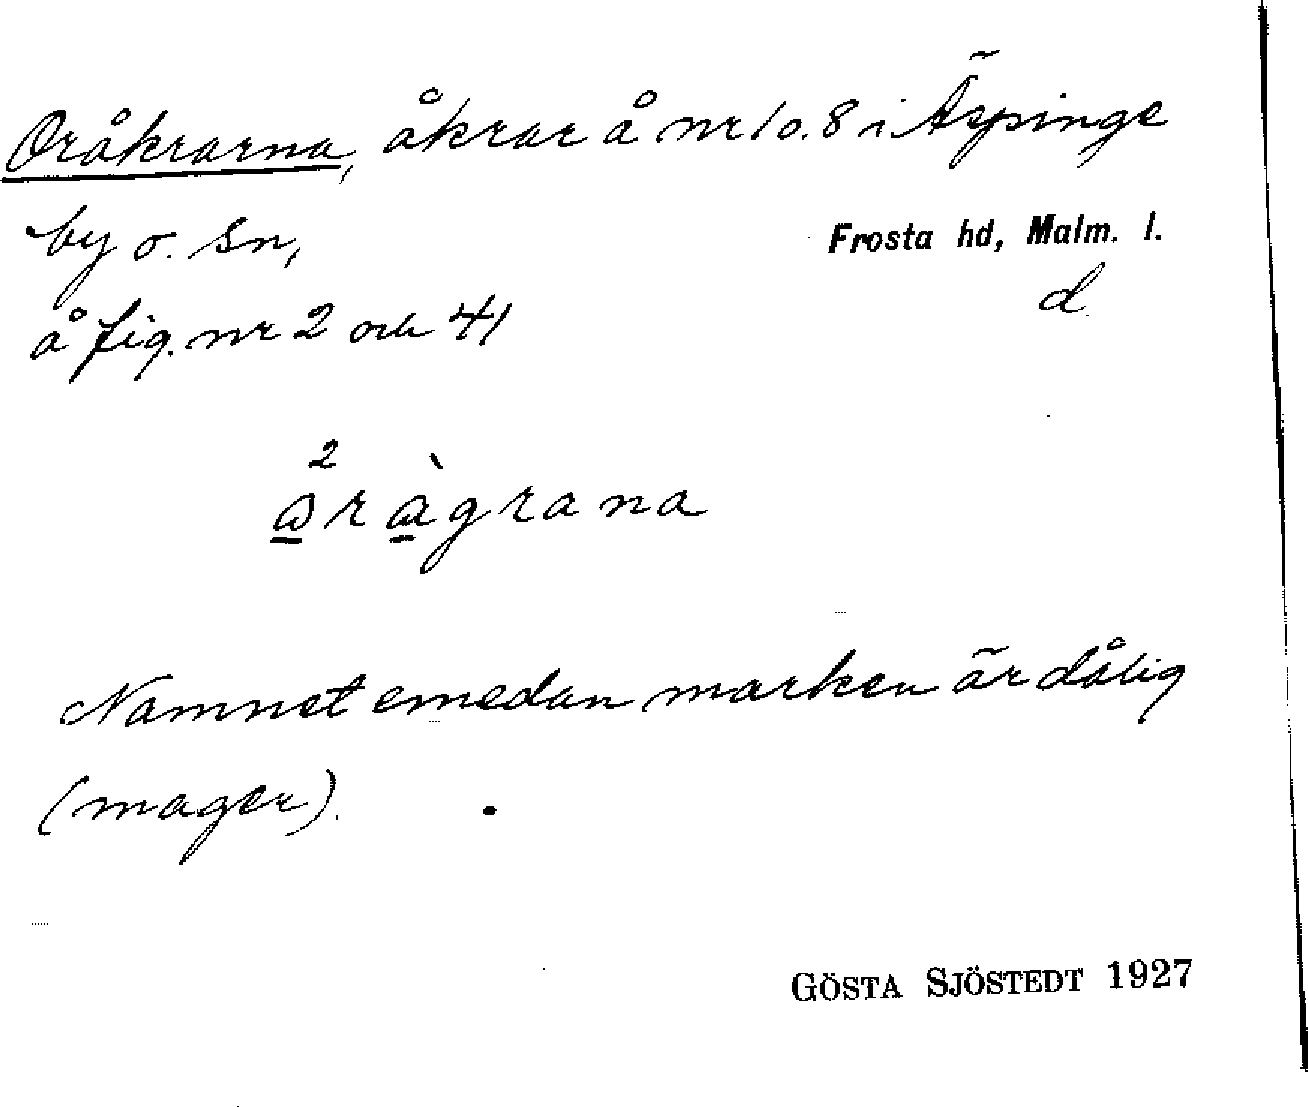 Oråkrarna, åkrar å nr 1 o. 8 i Äspinge
by o. sn, Frosta hd, Malm. l.
å fig. nr 2 och 41 d.
Namnet emedan marken är dålig
(mager).
GÖSTA SJÖSTEDT 1927